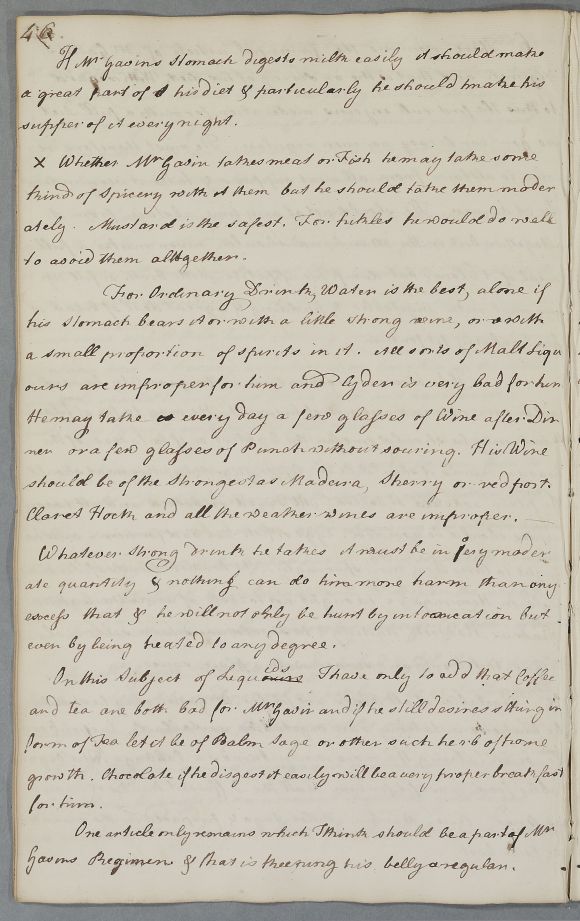 46
If Mr Gavins stomach digests milk easily it should make
a great part of his diet & particularly he should make his
supper of it every night.
X Whether Mr Gavin takes meat or Fish he may take some
kind of spicery with them but he should take them moder
ately. Mustard is the safest. For Pickles he would do well
to avoid them alltgether.
For Ordinary Drink, Water is the best, alone if
his stomach bears it or with a little strong wine, or with
a small proportion of spirits in it. All sorts of Malt Liqu
ours are improper for him and Cyder is very bad for him
He may take every day a few glasses of Wine after Din
ner or a few glasses of Punch without souring. His Wine
should be of the strongest as Madeira, Sherry or red port.
Claret Hock and all the weaker wines are improper.
Whatever strong drink he takes it must be in very moder
ate quantity & nothing can do him more harm than any
excess that & he will not only be hurt by intoxication but
even by being heated to any degree.
On this Subject of Liquids I have only to add that Coffee
and tea are both bad for Mr Gavin and if he still desires sitting in
form of Tea let it be of Balm Sage or other such herb of home
growth. Chocolate if he disgest it easily will be a very proper breakfast
for him.
One article only remains which I think should be a part of Mr
Gavins Regimen & that is keeping his belly regular.